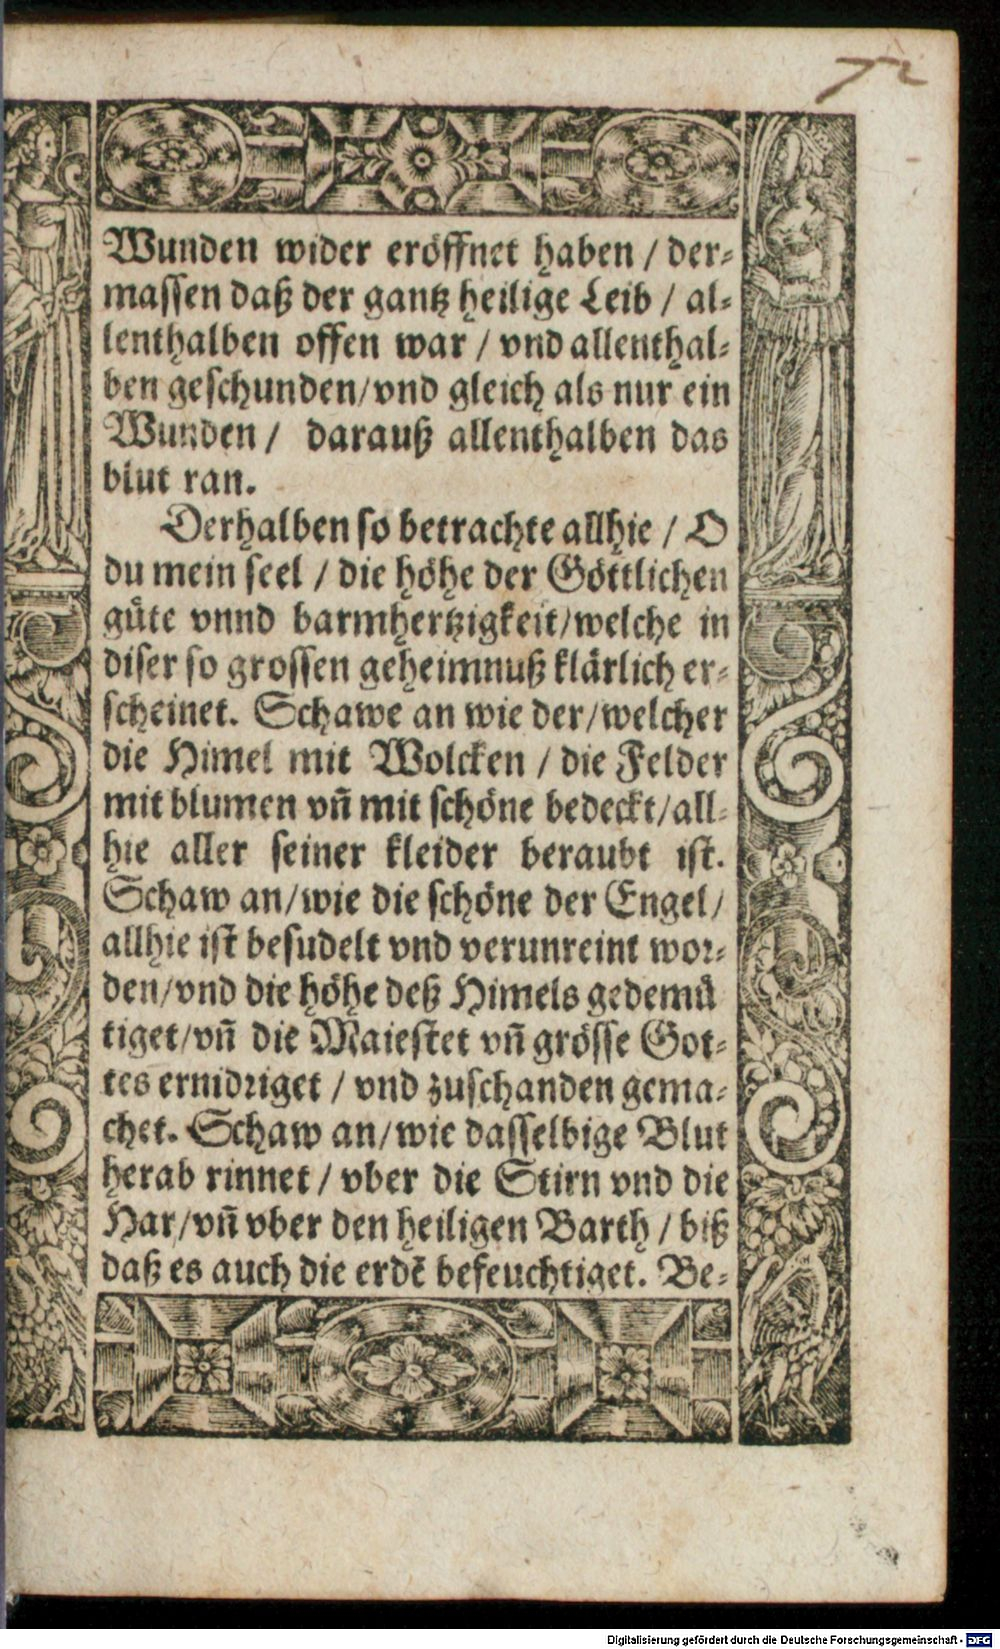 72
Wunden wider eröffnet haben / der-
massen daß der gantz heilige Leib / al-
lenthalben offen war / vnd allenthal-
ben geschunden/vnd gleich als nur ein
Wunden / darauß allenthalben das
blut ran.
Derhalben so betrachte allhie / O
du mein seel / die höhe der Göttlichen
güte vnnd barmhertzigkeit/welche in
diser so grossen geheimnuß klärlich er-
scheinet. Schawe an wie der/welcher
die Himel mit Wolcken / die Felder
mit blumen vñ mit schöne bedeckt/all-
hie aller seiner kleider beraubt ist.
Schaw an/wie die schöne der Engel/
allhie ist besudelt vnd verunreint wor-
den/vnd die höhe deß Himels gedemü
tiget/vñ die Maiestet vñ grösse Got-
tes ernidriget / vnd zuschanden gema-
chet. Schaw an/wie dasselbige Blut
herab rinnet / vber die Stirn vnd die
Har/vñ vber den heiligen Barth / biß
daß es auch die erdẽ befeuchtiget. Be-
Digitalisierung gefördert durch die Deutsche Forschungsgemeinschaft - DFG